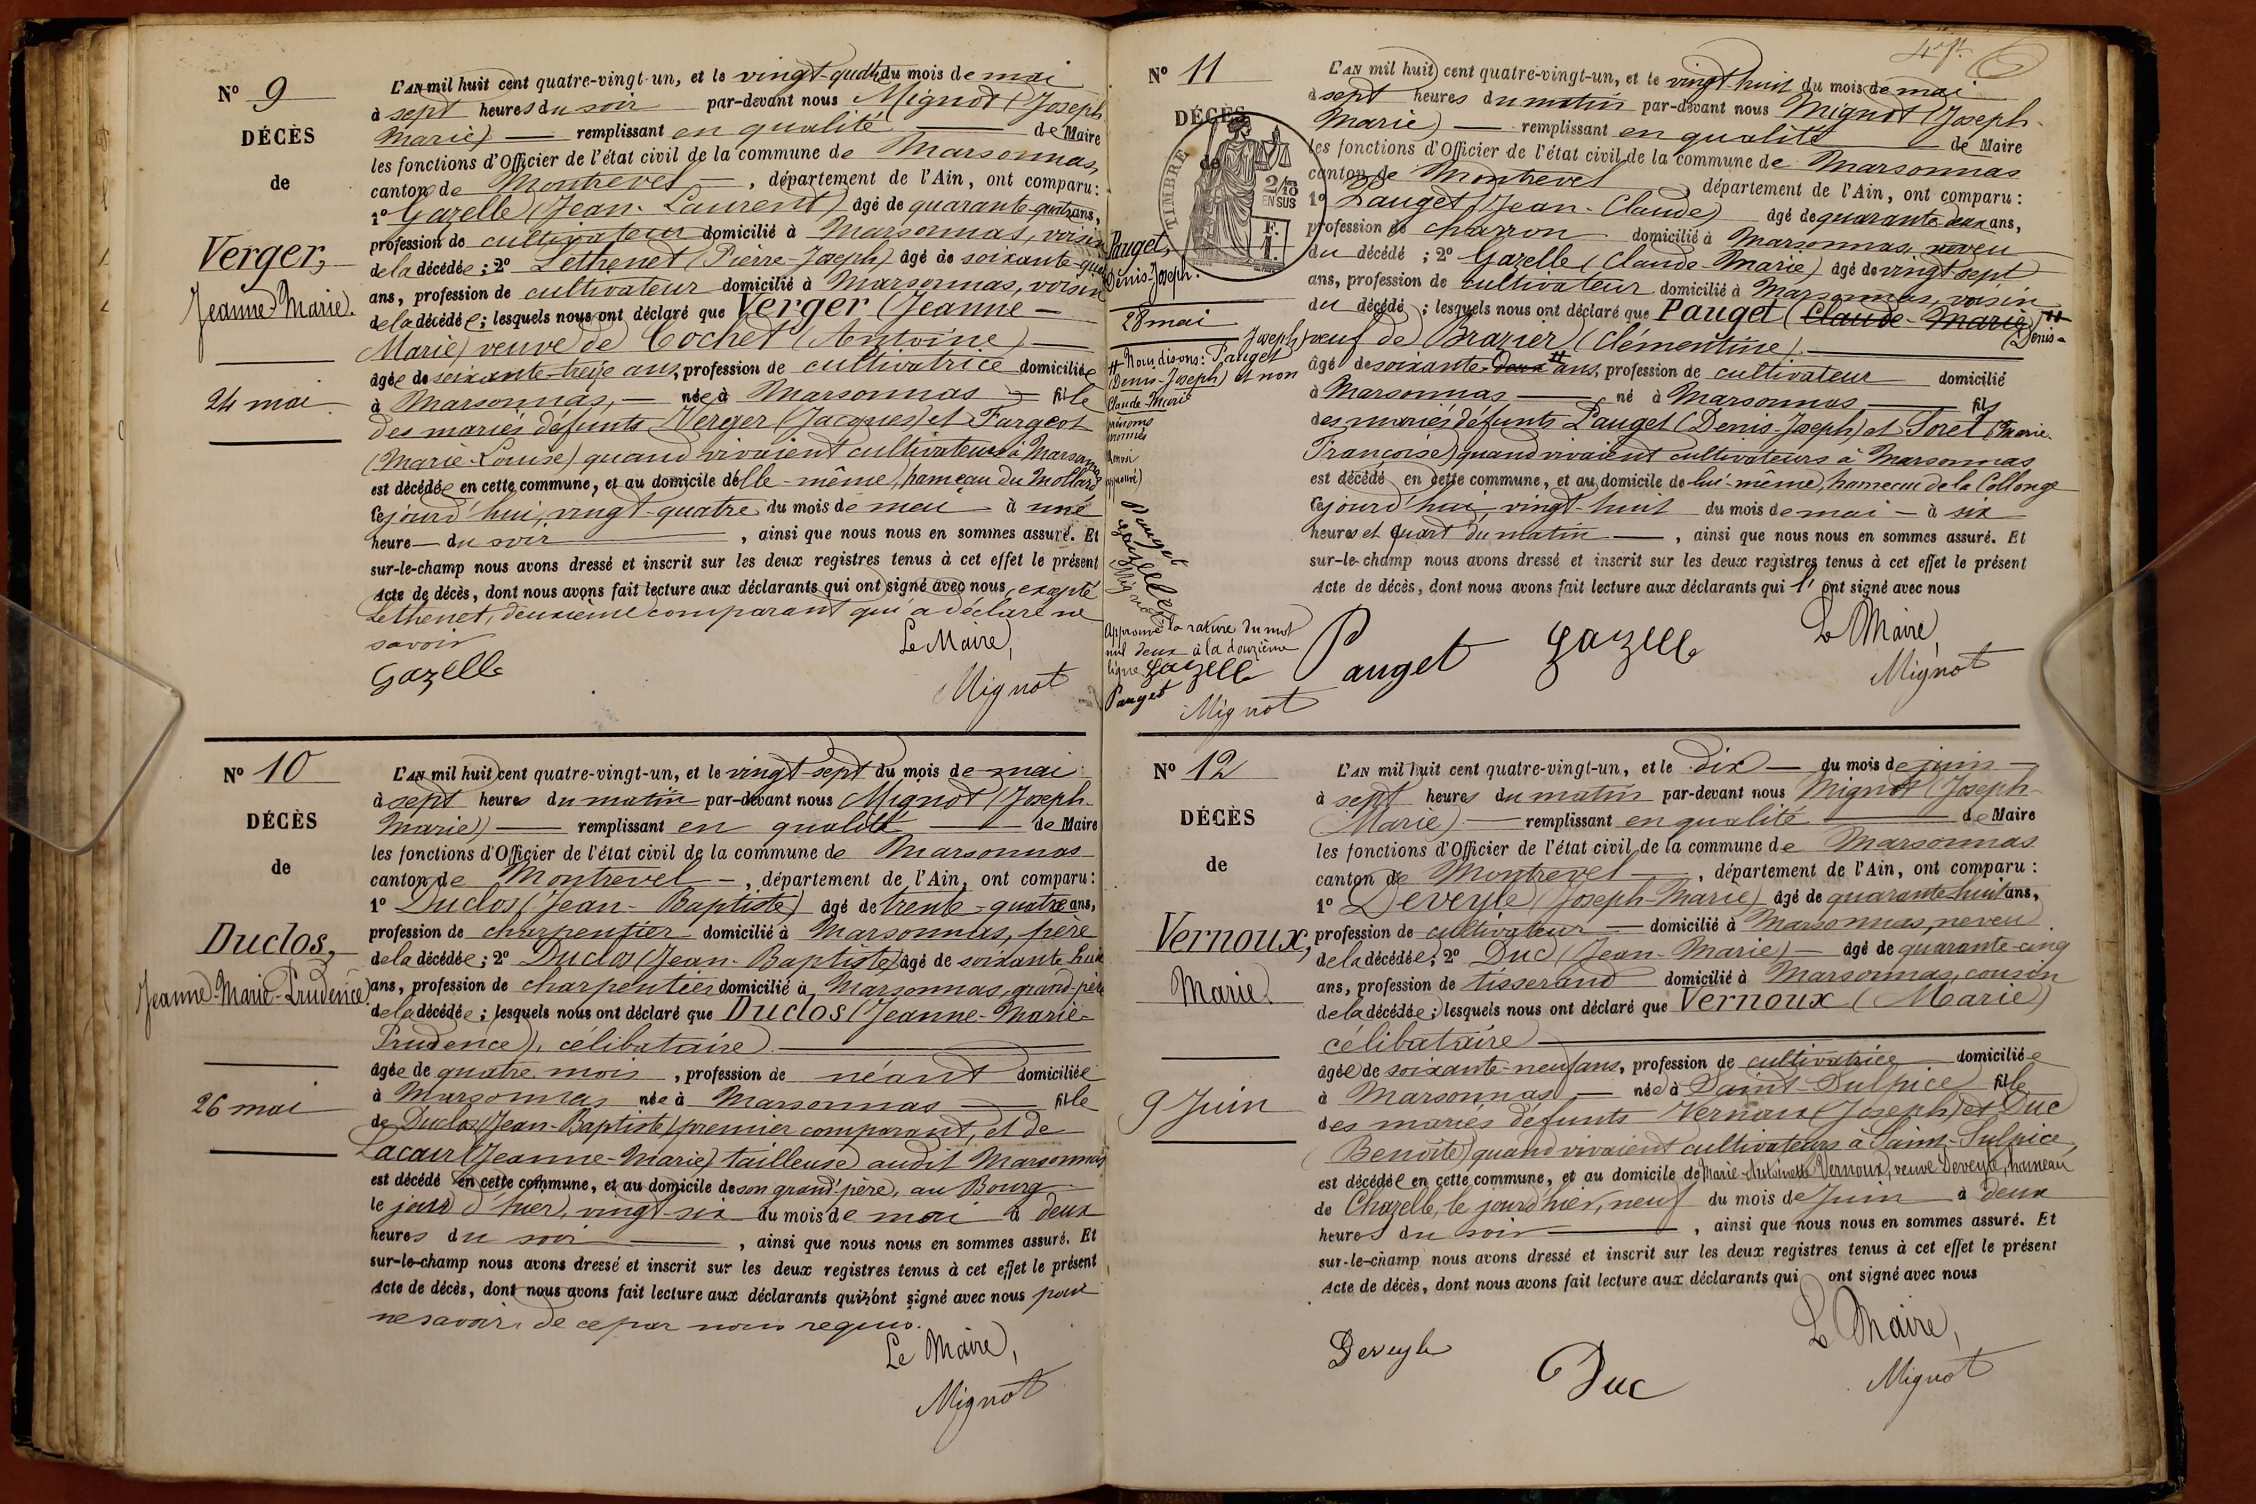 Nº 9
DÉCÈS
de
Verger,
Jeanne-Marie.
24 mai
L'AN mil huit cent quatre-vingt-un, et le vingt-quatre du mois de mai
à sept heures du soir par-devant nous Mignot (Joseph
Marie) — remplissant en qualité — de Maire
les fonctions d'Officier de l'état civil de la commune de Marsonnas,
canton de Montrevel —, département de l'Ain, ont comparu :
1º Gazelle (Jean-Laurent) âgé de quarante-quatre ans,
profession de cultivateur domicilié à Marsonnas, voisin
de la décédée ; 2º Lethenet (Pierre-Joseph) âgé de soixante-
ans, profession de cultivateur domicilié à Marsonnas, voisin
de la décédée ; lesquels nous ont déclaré que Verger (Jeanne-
Marie) veuve de Cochet (Antoine) —
âgée de soixante-treize ans, profession de cultivatrice domiciliée
à Marsonnas, — née à Marsonnas — fille
des mariés défunts Verger (Jacques) et Fargeot
(Marie-Louise) quand vivaient cultivateurs à Marsonnas
est décédée en cette commune, et au domicile d'elle-même, hameau du Mollard
cejourd'hui, vingt-quatre du mois de mai à une
heure — du soir —, ainsi que nous nous en sommes assuré. Et
sur-le-champ nous avons dressé et inscrit sur les deux registres tenus à cet effet le présent
Acte de décès, dont nous avons fait lecture aux déclarants qui ont signé avec nous, excepté
Lethenet, deuxième comparant qui a déclaré ne
savoir
Le Maire,
Gazelle
Mignot
Nº 10
DÉCÈS
de
Duclos,
Jeanne-Marie-Prudence.
26 mai
L'AN mil huit cent quatre-vingt-un, et le vingt-sept du mois de mai
à sept heures du matin par-devant nous Mignot (Joseph-
Marie) — remplissant en qualité — de Maire
les fonctions d'Officier de l'état civil de la commune de Marsonnas
canton de Montrevel —, département de l'Ain, ont comparu :
1º Duclos (Jean-Baptiste) âgé de trente-quatre ans,
profession de charpentier domicilié à Marsonnas, père
de la décédée ; 2º Duclos (Jean-Baptiste) âgé de soixante-huit
ans, profession de charpentier domicilié à Marsonnas, grand-père
de la décédée ; lesquels nous ont déclaré que Duclos (Jeanne-Marie-
Prudence), célibataire —
âgée de quatre mois, profession de néant domiciliée
à Marsonnas née à Marsonnas — fille
de Duclos (Jean-Baptiste) premier comparant, et de
Lacour (Jeanne-Marie) tailleuse audit Marsonnas
est décédé en cette commune, et au domicile de son grand'père, au Bourg
le jour d'hier, vingt-six du mois de mai à deux
heures du soir —, ainsi que nous nous en sommes assuré. Et
sur-le-champ nous avons dressé et inscrit sur les deux registres tenus à cet effet le présent
Acte de décès, dont nous avons fait lecture aux déclarants qui n'ont signé avec nous pour
ne savoir, de ce par nous requis.
Le Maire,
Mignot
Nº 11
DÉCÈS
de
TIMBRE
2/10
EN SUS
F.
1.
Pauget,
Denis-Joseph.
28 mai
# Nous disons : Pauget
(Denis-Joseph) et non
Claude-Marie
prénoms
Pauget
Gazelle
Mignot
Approuvé la rature du mot
nul deux à la douzième
ligne Gazelle
Pauget
Mignot
L'AN mil huit cent quatre-vingt-un, et le vingt-huit du mois de mai
à sept heures du matin par-devant nous Mignot (Joseph-
Marie) — remplissant en qualité — de Maire
les fonctions d'Officier de l'état civil de la commune de Marsonnas
canton de Montrevel, département de l'Ain, ont comparu :
1º Pauget (Jean-Claude) âgé de quarante-deux ans,
profession de charron domicilié à Marsonnas neveu
du décédé ; 2º Gazelle (Claude-Marie) âgé de vingt-sept
ans, profession de cultivateur domicilié à Marsonnas, voisin
du décédé ; lesquels nous ont déclaré que Pauget (Claude-Marie) # (Denis-
Joseph) veuf de Brazier (Clémentine) —
âgé de soixante-deux # ans, profession de cultivateur domicilié
à Marsonnas — né à Marsonnas — fils
des mariés défunts Pauget (Denis-Joseph) et Soret (Marie-
Françoise) quand vivaient cultivateurs à Marsonnas
est décédé en cette commune, et au domicile de lui-même, hameau de la Collonge
cejourd'hui, vingt-huit du mois de mai — à six
heures et quart du matin —, ainsi que nous nous en sommes assuré. Et
sur-le-champ nous avons dressé et inscrit sur les deux registres tenus à cet effet le présent
Acte de décès, dont nous avons fait lecture aux déclarants qui l'ont signé avec nous
Le Maire,
Pauget Gazelle
Mignot
Nº 12
DÉCÈS
de
Vernoux,
Marie.
9 Juin
L'AN mil huit cent quatre-vingt-un, et le dix — du mois de juin —
à sept heures du matin par-devant nous Mignot (Joseph-
Marie) — remplissant en qualité — de Maire
les fonctions d'Officier de l'état civil de la commune de Marsonnas
canton de Montrevel —, département de l'Ain, ont comparu :
1º Deveyle (Joseph-Marie) âgé de quarante-huit ans,
profession de cultivateur — domicilié à Marsonnas, neveu
de la décédée ; 2º Duc (Jean-Marie) — âgé de quarante-cinq
ans, profession de tisserand domicilié à Marsonnas, cousin
de la décédée ; lesquels nous ont déclaré que Vernoux (Marie)
célibataire —
âgée de soixante-neuf ans, profession de cultivatrice domiciliée
à Marsonnas — née à Saint-Sulpice fille
des mariés défunts Vernoux (Joseph) et Duc
(Benoîte) quand vivaient cultivateurs à Saint-Sulpice,
est décédée en cette commune, et au domicile de Marie-Antoinette Vernoux, veuve Deveyle, hameau
de Chazelle, le jour d'hier, neuf du mois de Juin à deux
heures du soir —, ainsi que nous nous en sommes assuré. Et
sur-le-champ nous avons dressé et inscrit sur les deux registres tenus à cet effet le présent
Acte de décès, dont nous avons fait lecture aux déclarants qui ont signé avec nous
Le Maire,
Deveyle
Duc
Mignot